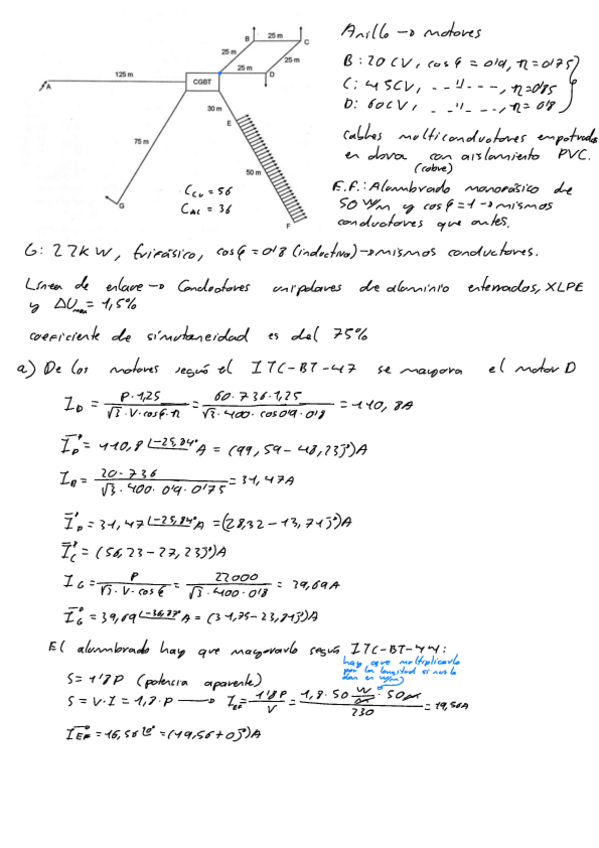 Anillo → motores
B: 20 CV, cos φ = 0'9, η = 0'75
C: 45 CV, - - " - - -, η = 0'85
D: 60 CV, - - " - - -, η = 0'8
cables multiconductores empotrados
en obra con aislamiento PVC.
(cobre)
E.F.: Alumbrado monofásico de
50 W/m y cos φ = 1 → mismos
conductores que antes.
B
25 m
C
25 m
25 m
25 m
D
125 m
A
CGBT
30 m
E
75 m
50 m
G
F
C Cu = 56
C AL = 36
G: 22 kW, trifásico, cos φ = 0'8 (inductivo) → mismos conductores.
Línea de enlace → Conductores unipolares de aluminio enterrados, XLPE
y ΔU max = 1,5%
coeficiente de simultaneidad es del 75%
a) De los motores según el ITC-BT-47 se mayora el motor D
I_D = P·1,25 / √3·V·cos φ·η = 60·736·1,25 / √3·400·cos 0'9·0'8 = 110,8A
I_D = 110,8 ∠-25,84° A = (99,59 - 48,23j) A
I_B = 20·736 / √3·400·0'9·0'75 = 31,47A
I_B = 31,47 ∠-25,84° A = (28,32 - 13,71j) A
I_C = (56,23 - 27,23j) A
I_G = P / √3·V·cos φ = 22000 / √3·400·0'8 = 39,69A
I_G = 39,69 ∠-36,87° A = (31,75 - 23,81j) A
El alumbrado hay que mayorarlo según ITC-BT-44:
hay que multiplicarlo
por la longitud si nos lo
dan en W/m
S = 1'8P (potencia aparente)
S = V·I = 1,8·P → I_EF = 1'8P / V = 1,8·50 W/m·50m / 230 = 19,56A
I_EF = 16,56 ∠0° = (19,56 + 0j) A